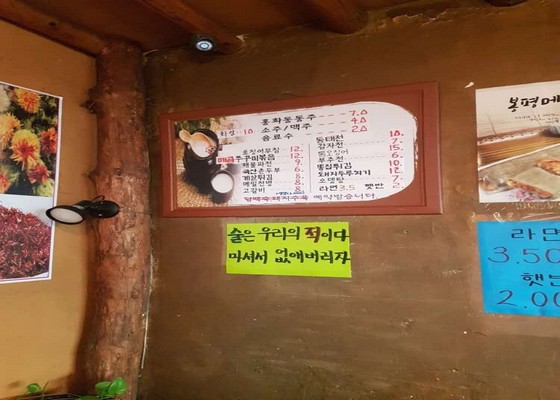 홍화동동주 7.0
소주/맥주 4.0
음료수 2.0
쭈꾸미볶음 12.
해물파전 9.
국산손두부 6.
게살튀김 8.
메밀전병 8.
고갈비 8.
동태전 10.
감자전 7.
도토리묵 15.
부추전 6.
닭똥집튀김 10.
돼지두루치기 12.
오뎅탕 7.
라면 3.5 햇반 2.
닭백숙 돼지수육 예약받습니다
술은 우리의 적이다
마셔서 없애버리자
봉평메
라면
3.50
햇반
2.00